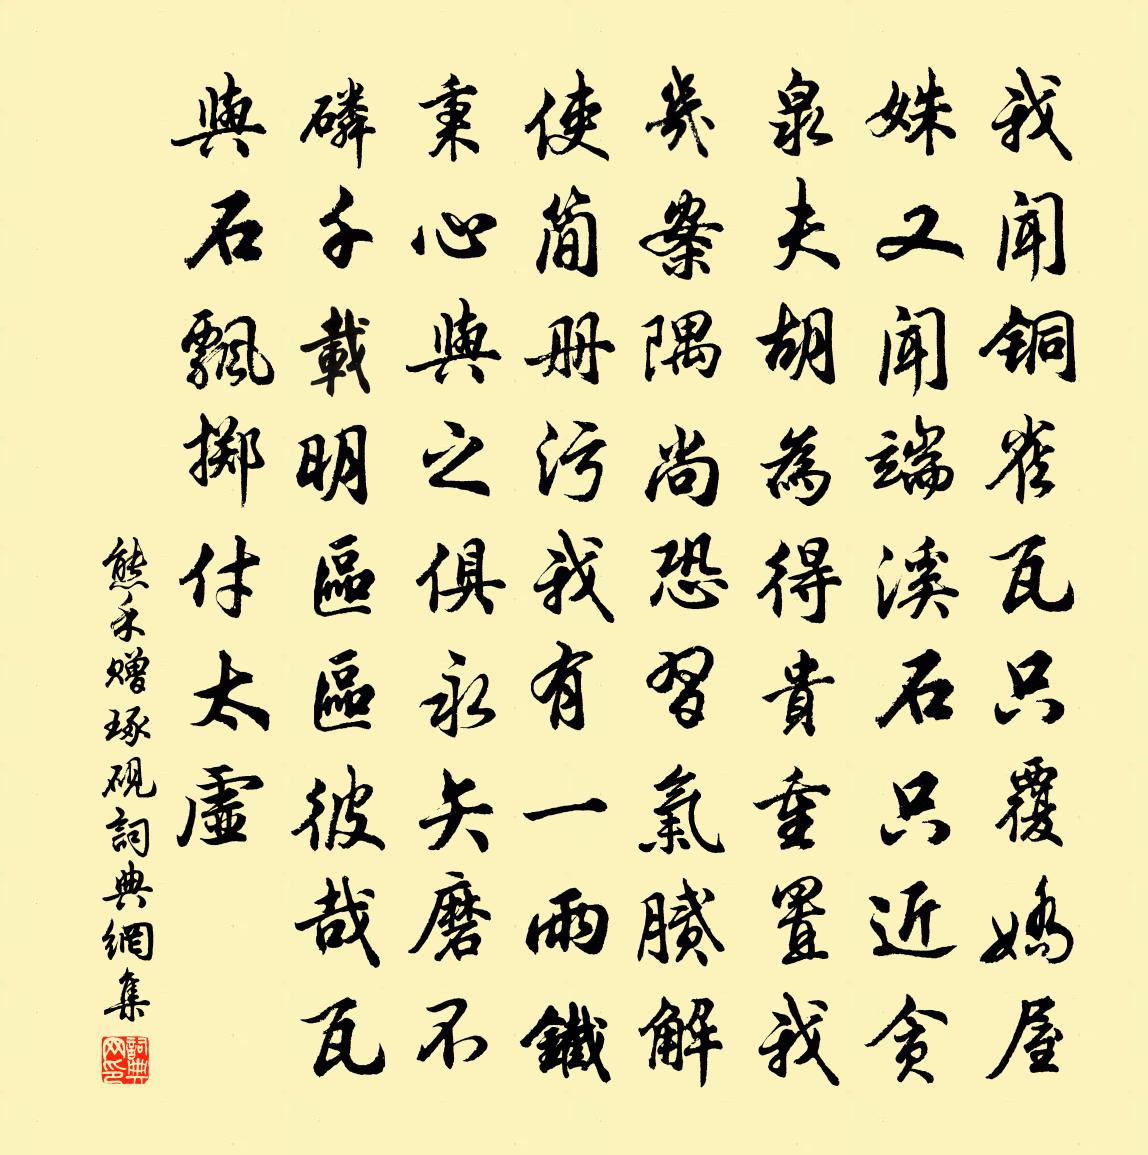 我聞銅雀瓦只覆嬌屋
姝又聞端溪石只近貪
泉夫胡為得貴重置我
幾案隅尚恐習氣膩解
使簡册污我有一兩鐵
秉心與之俱永矢磨不
磷千載明區區彼哉瓦
與石飄擲付太虛
熊禾贈琢硯詞典網集
詞典网印